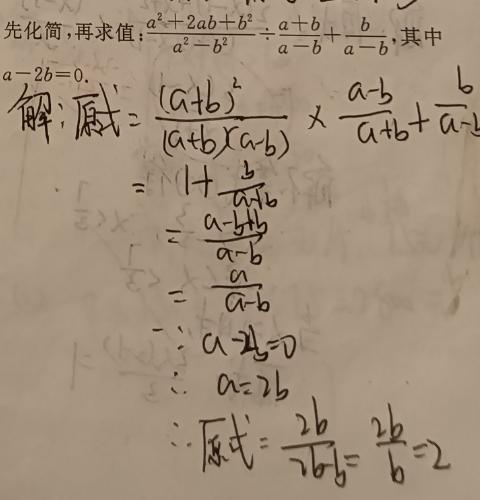 先化简,再求值:(a²+2ab+b²)/(a²-b²)÷(a+b)/(a-b)+b/(a-b),其中
a-2b=0.
解:原式=(a+b)²/((a+b)(a-b))×(a-b)/(a+b)+b/(a-b)
=1+b/(a-b)
=(a-b+b)/(a-b)
=a/(a-b)
∵a-2b=0
∴a=2b
∴原式=2b/(2b-b)=2b/b=2